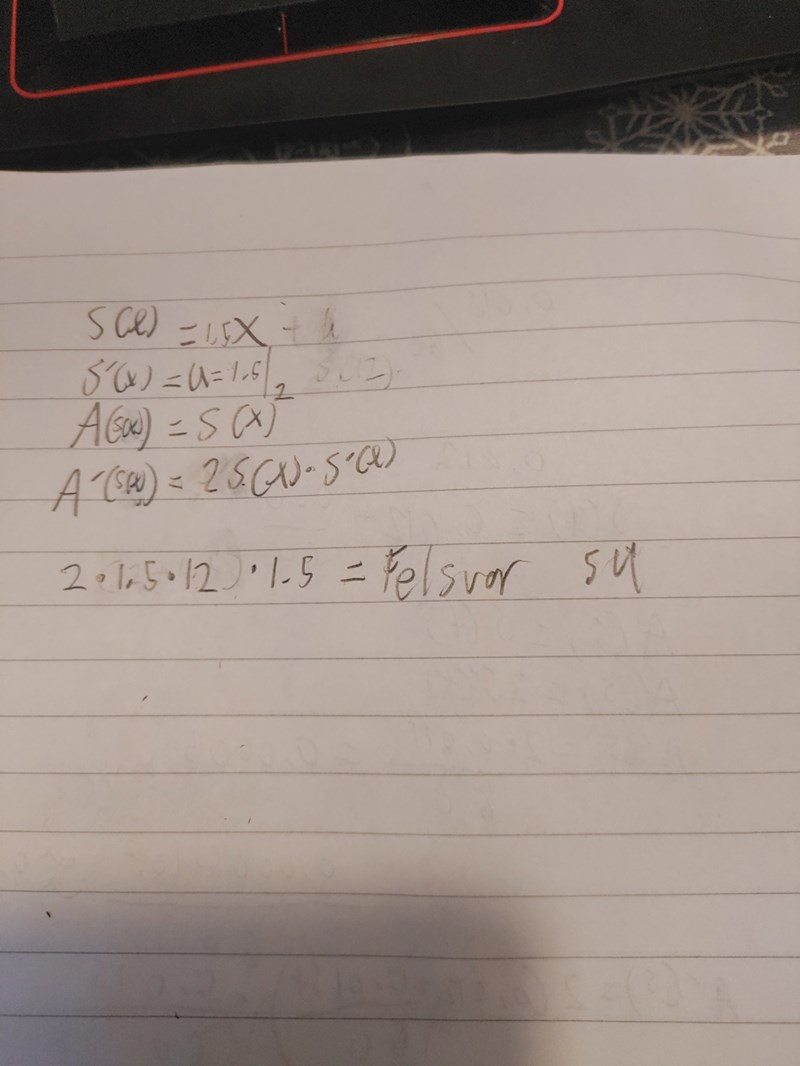 S(x) = 1.5x
S'(x) = a = 1.5
A(s(x)) = S(x)²
A'(s(x)) = 2S(x)·S'(x)
2·1.5·12)·1.5 = Felsvar 54